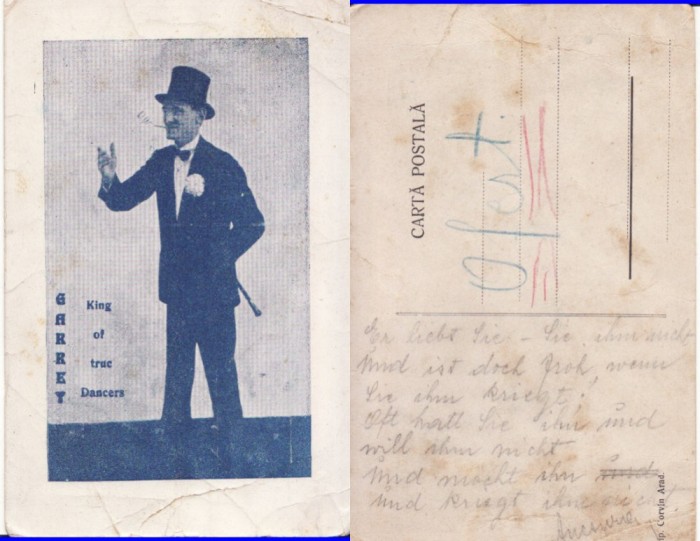 GARRET
King
of
true
Dancers
CARTĂ POSTALĂ
Ofert.
Er liebt Sie – Sie ihm nicht
Und ist doch froh wenn
Sie ihn kriegt!
Oft hatt Sie ihn und
will ihm nicht
Und möcht ihn und
und kriegt ihn nicht!
ip. Corvin Arad.